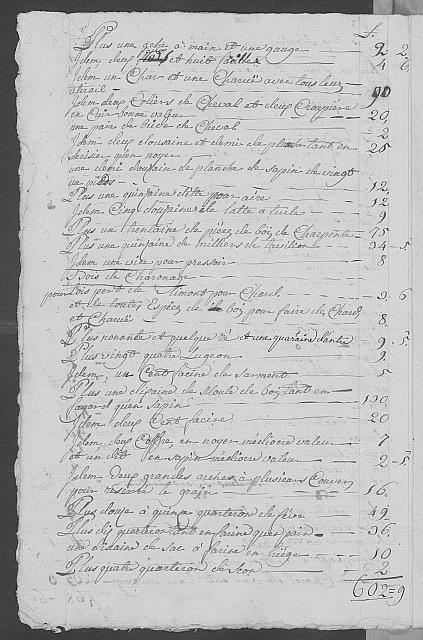 f.
Plus une à main et une gauge — 2 2
Idem deux et huit — 4 6
Idem un Char et une Charuë avec tous leur
atirail — 90
Idem deux Coliers de Cheval et deux Croupiere
en Cuir bonne valeur — 20
une pair de de Cheval — 2
Idem deux dousaine et demie de tant en
que noyer — 25
une demi dousaine de planche de sapin de vingt
un pieds — 12
Plus une quinsaine dite pour aire — 12
Idem Cinq dousaine de latte a tuile — 9
Plus un trentaine de pièce de bois de Charpente — 75
Plus une quinsaine de milliers de — 34 - 5
Idem une vice pour pressoir — 8
Bois de Charonage
pour bois pert de Timont pour Char — 3 6
et de toutes Espece de bois pour faire de Chard
et Charuë — 8
Plus nonante et quelque et une quaraine d'antre — 9 - 5
Plus vingt quatre — 2
Idem un Cent facine de sarment — 5
Plus une disaine de Moule de bois tant en
fayard qu'en sapin — 120
Idem deux Cent facine — 20
Idem deux Coffre en noyer médiocre valeur — 7
et un dit en sapin médiocre valeur — 2 - 5
Idem Deux grandes arches a plusieurs Couver
pour reserve le grain — 16
Plus douse a quinse quarteron de feve — 49
Plus dis quarteron tant en farine que pain — 36
une disaine de sac a farine en — 10
Plus quatre quarteron de — 2
602 = 9